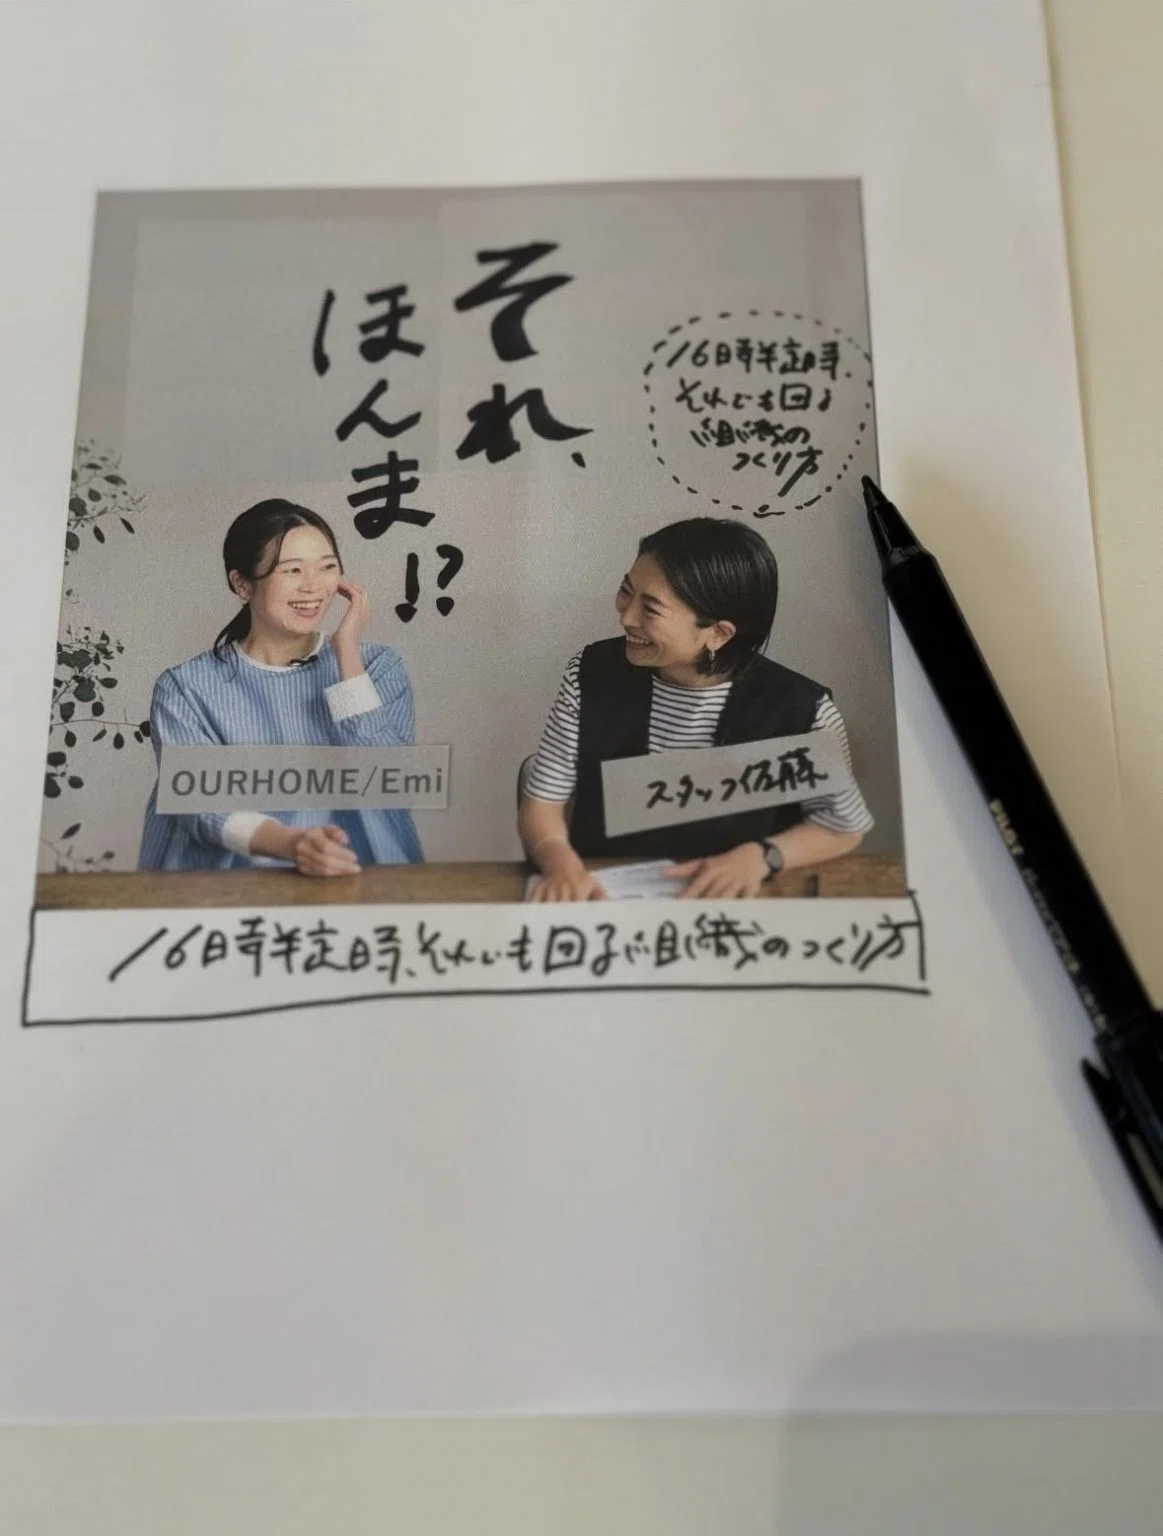 それ、
ほんま!?
16時半定時、
それでも回る
組織の
つくり方
OURHOME/Emi
スタッフ佐藤
16時半定時、それでも回る組織のつくり方
PILOT